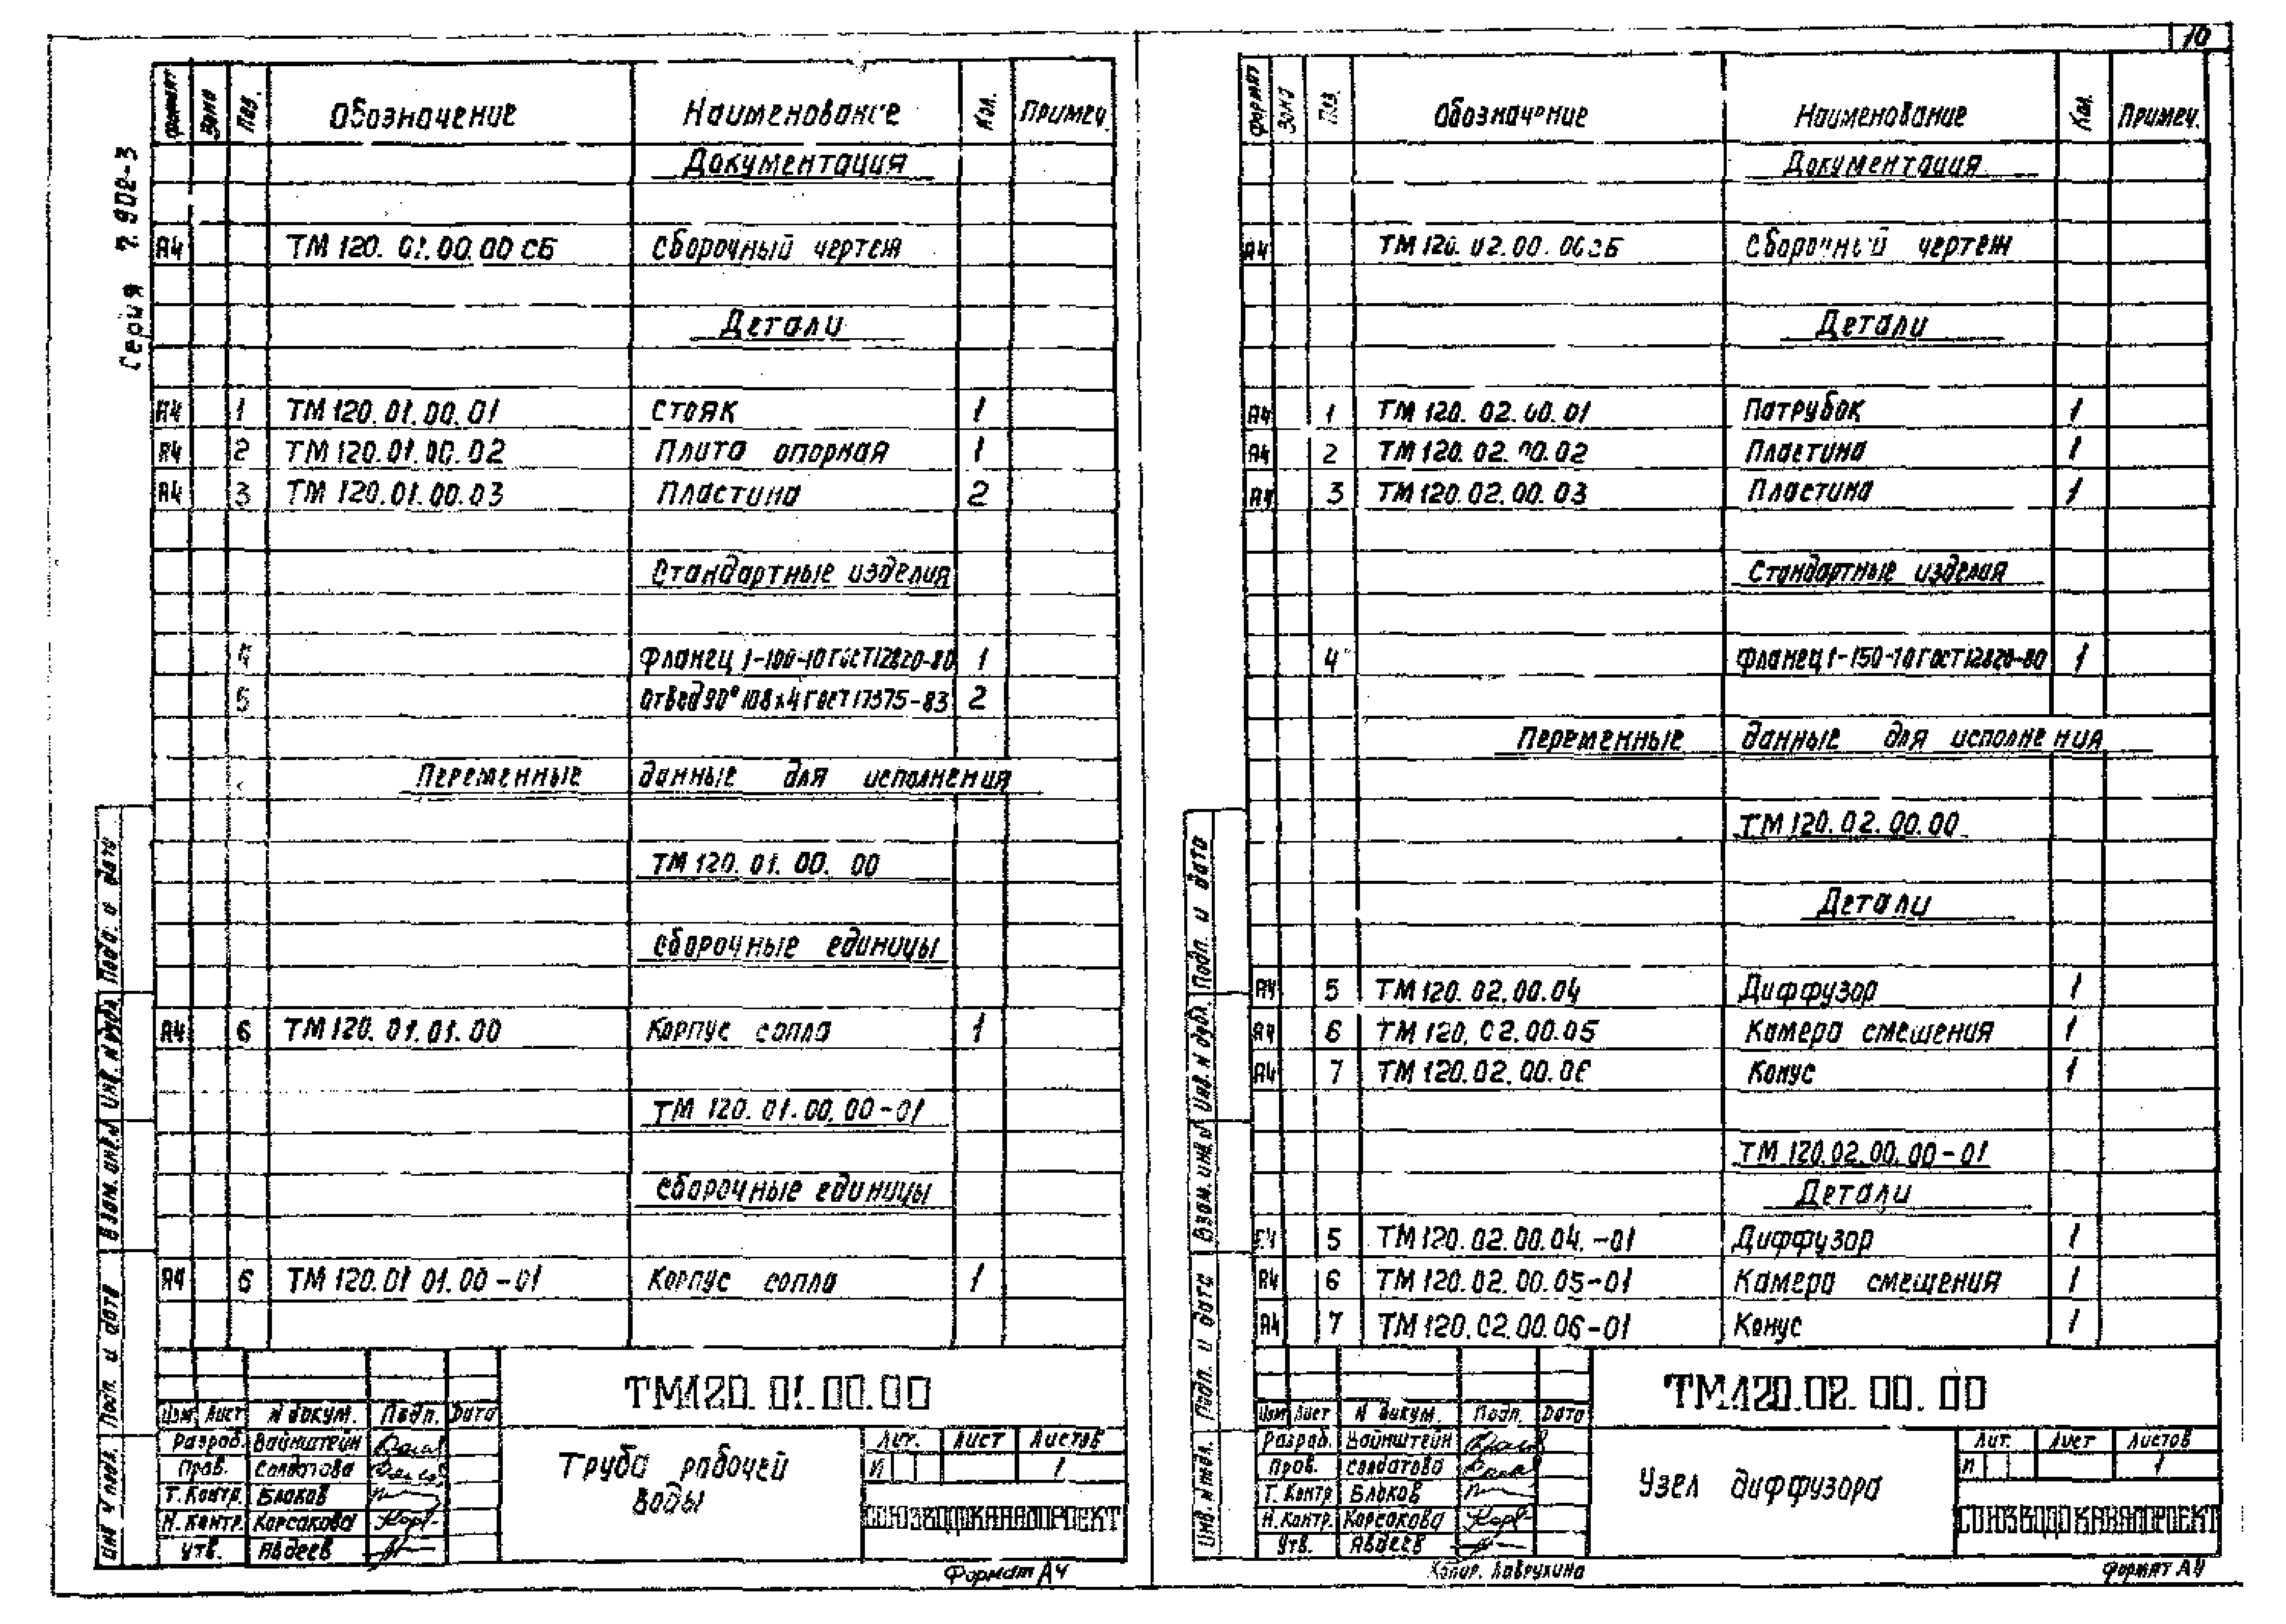 10
Серия 7.902-3
Формат Зона Поз. Обозначение Наименование Кол. Примеч.
Документация
А4 ТМ 120.01.00.00 СБ Сборочный чертеж
Детали
А4 1 ТМ 120.01.00.01 Стояк 1
А4 2 ТМ 120.01.00.02 Плита опорная 1
А4 3 ТМ 120.01.00.03 Пластина 2
Стандартные изделия
4 Фланец 1-100-10 ГОСТ 12820-80 1
5 Отвод 90° 108х4 ГОСТ 17375-83 2
Переменные данные для исполнения
ТМ 120.01.00.00
Сборочные единицы
А4 6 ТМ 120.01.01.00 Корпус сопла 1
ТМ 120.01.00.00-01
Сборочные единицы
А4 6 ТМ 120.01 01.00-01 Корпус сопла 1
Инв. № подл. Подп. и дата Взам. инв. № Инв. № дубл. Подп. и дата
ТМ120.01.00.00
Изм Лист № докум. Подп. Дата
Разраб. Вайнштейн
Пров. Солдатова
Т. Контр. Блоков
Н. контр. Корсакова
Утв. Авдеев
Труба рабочей воды
Лит. Лист Листов
И 1
СОЮЗВОДОКАНАЛПРОЕКТ
Формат А4
Формат Зона Поз. Обозначение Наименование Кол. Примеч.
Документация
А4 ТМ 120.02.00.00СБ Сборочный чертеж
Детали
А4 1 ТМ 120.02.00.01 Патрубок 1
А4 2 ТМ 120.02.00.02 Пластина 1
А4 3 ТМ 120.02.00.03 Пластина 1
Стандартные изделия
4 Фланец 1-150-10 ГОСТ 12820-80 1
Переменные данные для исполнения
ТМ 120.02.00.00
Детали
А4 5 ТМ 120.02.00.04 Диффузор 1
А4 6 ТМ 120.02.00.05 Камера смешения 1
А4 7 ТМ 120.02.00.06 Конус 1
ТМ 120.02.00.00-01
Детали
А4 5 ТМ 120.02.00.04.-01 Диффузор 1
А4 6 ТМ 120.02.00.05-01 Камера смещения 1
А4 7 ТМ 120.02.00.06-01 Конус 1
Инв. № подл. Подп. и дата Взам. инв. № Инв. № дубл. Подп. и дата
ТМ120.02.00.00
Изм Лист № докум. Подп. Дата
Разраб. Вайнштейн
Пров. Солдатова
Т. Контр Блоков
Н. контр. Корсакова
Утв. Авдеев
Узел диффузора
Лит. Лист Листов
И 1
СОЮЗВОДОКАНАЛПРОЕКТ
Копир. Лаврухина
Формат А4